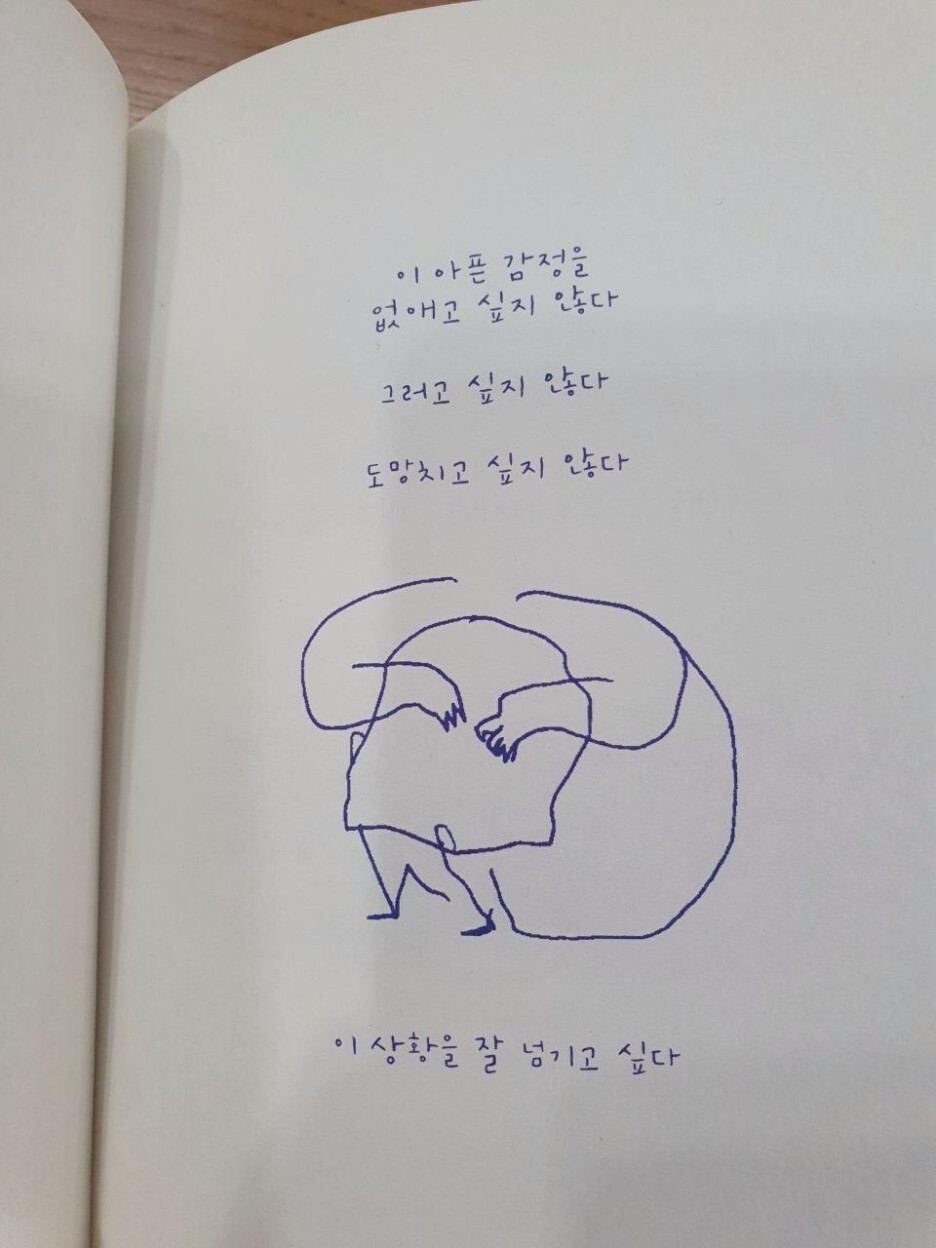 이 아픈 감정을
없애고 싶지 않다
그러고 싶지 않다
도망치고 싶지 않다
이 상황을 잘 넘기고 싶다